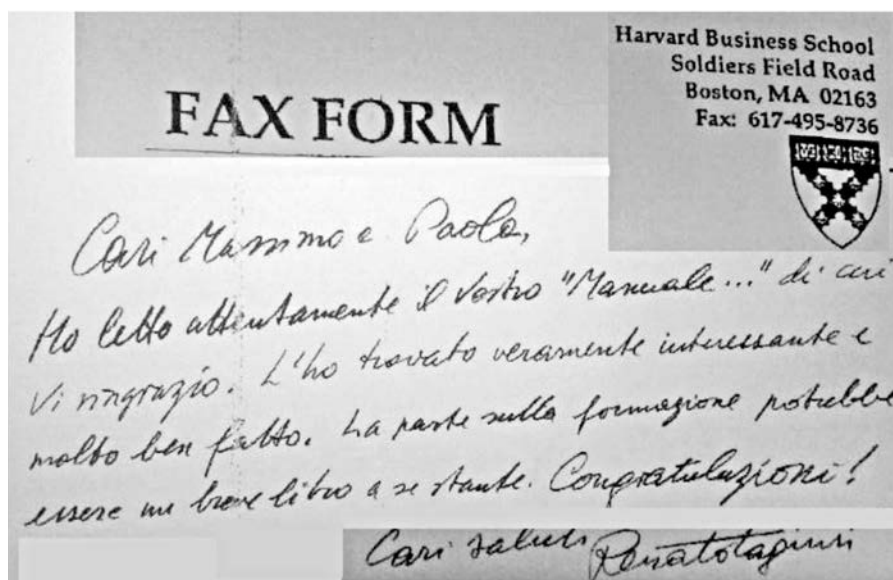 Harvard Business School
Soldiers Field Road
Boston, MA 02163
Fax: 617-495-8736
FAX FORM
Cari Massimo e Paolo,
Ho letto attentamente il vostro "Manuale..." di cui
vi ringrazio. L'ho trovato veramente interessante e
molto ben fatto. La parte sulla formazione potrebbe
essere un breve libro a se stante. Congratulazioni!
Cari saluti Renato Tagiuri